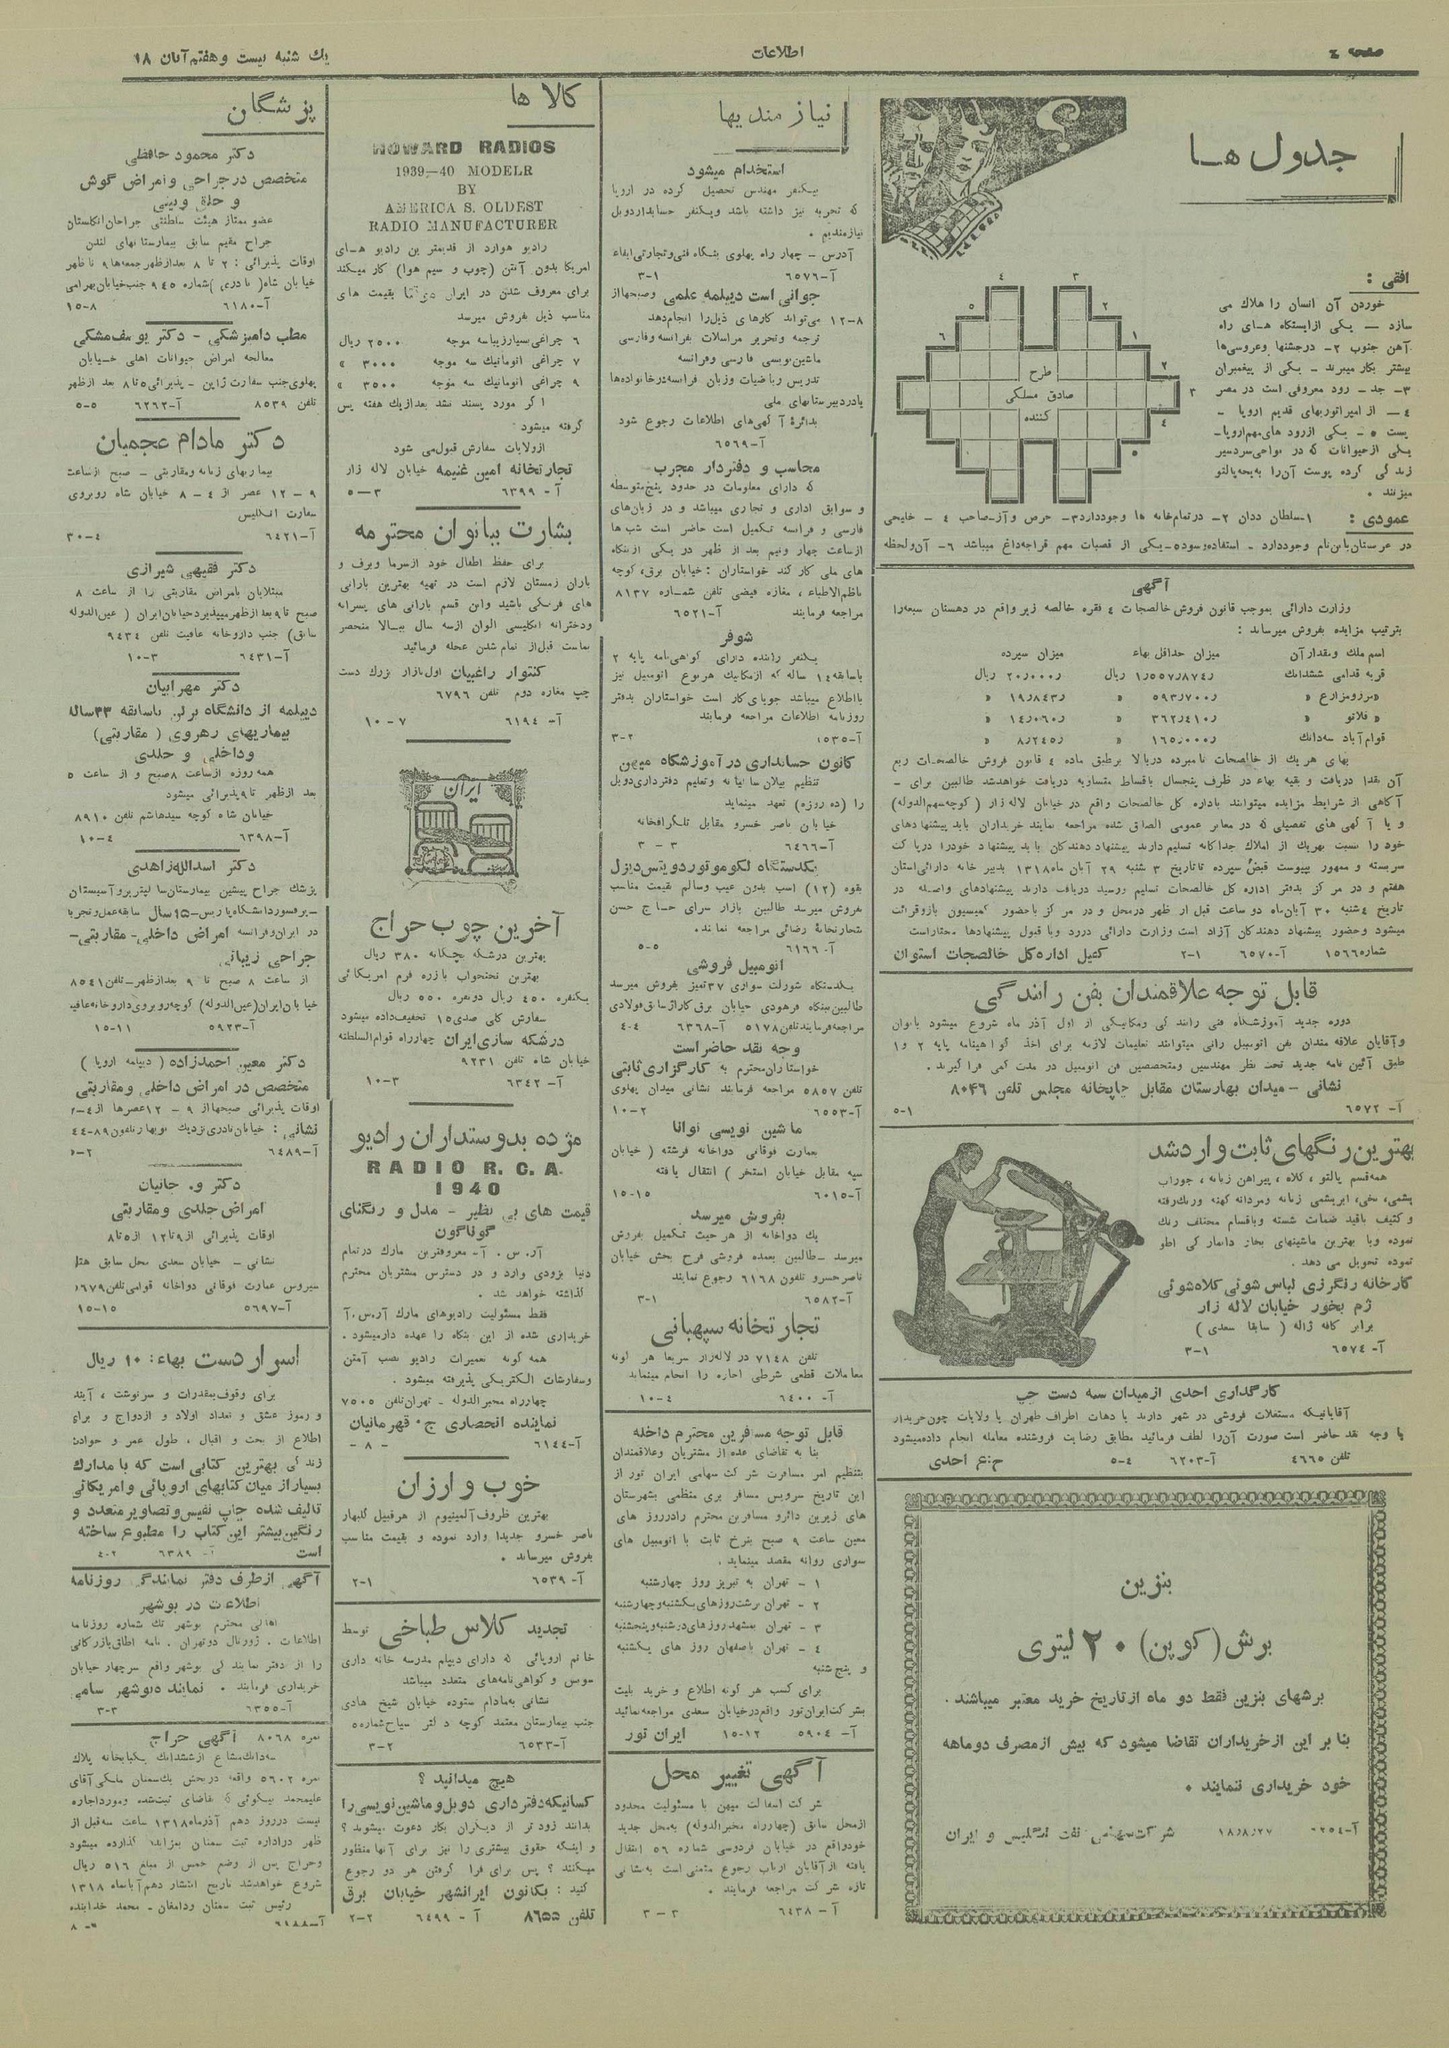 صفحه ٤
اطلاعات
یك شنبه بیست و هفتم آبان ١٨
جدول هـا
افقی :
خوردن آن انسان را هلاك می
سازد — یکی از ایستگاه هـای راه
آهن جنوب ٢- درجشنها وعروسی‌ها
بیشتر بکار میبرند - یکی از پیغمبران
٣- جد - رود معروفی است در مصر
٤ — از امپراتوریهای قدیم اروپا -
پست ٥ - یکی ازرود های مهم اروپا -
یکی از حیوانات که در نواحی سردسیر
زندگی کرده پوست آن را
میزنند .
طرح
صادق مسلکی
کننده
عمودی : ١-سلطان ددان ٢- درتمام خانه ها وجود دارد ٣- حرص و آز-صاحب ٤ - خلیجی
در عربستان باین نام وجود دارد - استفاده وسود ٥-یکی از قصبات مهم قراجه‌داغ میباشد ٦- آن ولحظه
آگهی
وزارت دارائی بموجب قانون فروش خالصجات ٤ فقره خالصه زیر واقع در دهستان
بترتیب مزایده بفروش میرساند :
اسم ملك ومقدار آن میزان حداقل بهاء میزان سپرده
قریه قدامی ششدانك ١٫٥٥٧٫٨٧٤ر ریال ٢٠٫٠٠٠ر ریال
«مرزومزارع « ٥٩٣٫٧٠٠ر « ١٩٫٨٤٣ر «
« فلاتو « ٣٦٢٫٤١٠ر « ١٤٫٠٦٠ر «
قوام آباد سه‌دانك ١٦٥٫٠٠٠ر « ٨٫٢٤٥ر «
بهای هریك از خالصجات نامبرده دربالا برطبق ماده ٤ قانون فروش خالصجات ربع
آن نقدا دریافت و بقیه بهاء در ظرف پنجسال باقساط متساویه دریافت خواهدشد طالبین برای -
آگاهی از شرایط مزایده میتوانند باداره کل خالصجات واقع در خیابان لاله زار (کوچه‌سهم‌الدوله)
و یا آگهی های تفصیلی که در معابر عمومی الصاق شده مراجعه نمایند خریداران باید پیشنهادهای
خود را نسبت بهریك از املاك جداگانه تسلیم دارند پیشنهاد دهندگان باید پیشنهاد خودرا درپاکت
سربسته و ممهور بپیوست قبض سپرده تاتاریخ ٣ شنبه ٢٩ آبان ماه ١٣١٨ بدبیر خانه دارائی استان
هفتم و در مرکز بدفتر اداره کل خالصجات تسلیم ورسید دریافت دارند پیشنهادهای واصله در
تاریخ ٤شنبه ٣٠ آبان‌ماه دو ساعت قبل از ظهر درمحل و در مرکز باحضور کمیسیون باز وقرائت
میشود وحضور پیشنهاد دهندگان آزاد است وزارت دارائی دررد ویا قبول پیشنهادها مختاراست
شماره ١٥٦٦٩ آ-٦٥٧٠ ٢-١ کفیل اداره کل خالصجات استوان
قابل توجه علاقمندان بفن رانندگی
دوره جدید آموزشگاه فنی رانندگی ومکانیکی از اول آذر ماه شروع میشود بانوان
وآقایان علاقه مندان بفن اتومبیل رانی میتوانند تعلیمات لازمه برای اخذ گواهینامه پایه ٢ و ١
طبق آئین نامه جدید تحت نظر مهندسین ومتخصصین فن اتومبیل در مدت کمی فرا گیرند .
نشانی - میدان بهارستان مقابل چاپخانه مجلس تلفن ٨٠٤٦
آ- ٦٥٧٢ ٥-١
بهترین رنگهای ثابت وارد شد
همه قسم پالتو ، کلاه ، پیراهن زنانه ، جوراب
پشمی، نخی، ابریشمی زنانه ومردانه کهنه ورنك‌رفته
و کثیف باقید ضمانت شسته وباقسام مختلف رنك
نموده وبا بهترین ماشینهای بخار دانمارکی اطو
نموده تحویل می دهد .
کارخانه رنگرزی لباس شوئی کلاه‌شوئی
ژم بخور خیابان لاله زار
برابر کافه ژاله ( سابقا سعدی )
آ- ٦٥٧٤ ٣-١
کارگذاری احدی از میدان سپه دست چپ
آقایانیکه مستغلات فروشی در شهر دارند یا دهات اطراف طهران یا ولایات چون خریدار
با وجه نقد حاضر است صورت آن را لطف فرمائید مطابق رضایت فروشنده معامله انجام داده میشود
تلفن ٤٦٦٥ آ-٦٢٠٣ ٥-٤ ح.ع احدی
بنزین
برش (کوپن) ٢٠ لیتری
برشهای بنزین فقط دو ماه از تاریخ خرید معتبر میباشند .
بنا بر این از خریداران تقاضا میشود که بیش از مصرف دوماهه
خود خریداری ننمایند .
١٨٫٨٫٢٧ شرکت سهامی نفت انگلیس و ایران
نیازمندیها
استخدام میشود
یکنفر مهندس تحصیل کرده در اروپا
که تجربه نیز داشته باشد ویکنفر حسابداردوبل
نیازمندیم .
آدرس - چهار راه پهلوی بنگاه فنی وتجارتی ایفاء
آ-٦٥٧٦ ٣-١
جوانی است دیپلمه علمی وصبحها از
٨-١٢ می‌تواند کارهای ذیل را انجام دهد
ترجمه وتحریر مراسلات بفرانسه وفارسی
ماشین‌نویسی فارسی وفرانسه
تدریس ریاضیات وزبان فرانسه درخانواده‌ها
یادردبیرستانهای ملی
بدائرۀ آگهی‌های اطلاعات رجوع شود
آ-٦٥٦٩
محاسب و دفتردار مجرب
که دارای معلومات در حدود پنج متوسطه
و سوابق اداری و تجاری میباشد و در زبان‌های
فارسی و فرانسه تکمیل است حاضر است شب ها
از ساعت چهار ونیم بعد از ظهر در یکی از بنگاه
های ملی کار کند خواستاران : خیابان برق، کوچه
ناظم‌الاطباء ، مغازه فیضی تلفن شماره ٨١٣٧
مراجعه فرمایند آ-٦٥٢١
شوفر
یکنفر راننده دارای گواهی‌نامه پایه ٢
باسابقه ١٤ ساله که ازمکانیك هر نوع اتومبیل نیز
بااطلاع میباشد جویای کار است خواستاران بدفتر
روزنامه اطلاعات مراجعه فرمایند
٣-٢
کانون حسابداری در آموزشگاه میهن
تنظیم بیلان سالیانه وتعلیم دفترداری دوبل
را (ده روزه) تعهد مینماید
خیابان ناصر خسرو مقابل تلگرافخانه
آ-٦٤٦٦ ٣ - ٣
یکدستگاه لکوموتور دویتس دیزل
بقوه (١٢) اسب بدون عیب وسالم بقیمت مناسب
بفروش میرسد طالبین بازار سرای حساج حسن
بتجارتخانۀ رضائی مراجعه نمایند.
آ-٦١٦٦ ٥-٥
اتومبیل فروشی
یکدستگاه شورلت سواری ٣٧ تمیز بفروش میرسد
طالبین ببنگاه فرهودی خیابان برق گاراژ سابق فولادی
مراجعه فرمایند تلفن ٥١٧٨ آ-٦٣٦٨ ٤-٤
وجه نقد حاضر است
خواستاران محترم به کارگزاری ثابتی
تلفن ٥٨٥٧ مراجعه فرمایند نشانی میدان پهلوی
آ-٦٥٥٣ ١٠-٢
ماشین نویسی توانا
بعمارت فوقانی دواخانه فرشته ( خیابان
سپه مقابل خیابان استخر ) انتقال یافته
آ-٦٠١٥ ١٥-١٥
بفروش میرسد
یك دواخانه از هر حیث تکمیل بفروش
میرسد - طالبین بعمده فروشی فرح بخش خیابان
ناصرخسرو تلفون ٦١٦٨ رجوع نمایند
آ-٦٥٨٢ ٣-١
تجارتخانه سپهبانی
تلفن ٧١٤٨ در لاله‌زار سریعا هر گونه
معاملات قطعی شرطی اجاره را انجام مینماید
آ- ٦٤٠٠ ١٠-٤
قابل توجه مسافرین محترم داخله
بنا به تقاضای عده از مشتریان وعلاقمندان
بتنظیم امر مسافرت شرکت سهامی ایران تور از
این تاریخ سرویس مسافر بری منظمی بشهرستان
های زیرین دائرو مسافرین محترم رادرروز های
معین ساعت ٩ صبح بنرخ ثابت با اتومبیل های
سواری روانه مقصد مینماید .
١ - تهران به تبریز روز چهارشنبه
٢ - تهران برشت روزهای یکشنبه وچهارشنبه
٣ - تهران بمشهد روزهای دوشنبه وپنجشنبه
٤ - تهران باصفهان روز های یکشنبه
و پنج شنبه
برای کسب هر گونه اطلاع و خرید بلیت
بشرکت ایران تور واقع درخیابان سعدی مراجعه نمائید
آ- ٥٩٠٤ ١٥-١٢ ایران تور
آگهی تغییر محل
شرکت اسفالت میهن با مسئولیت محدود
ازمحل سابق (چهارراه مخبرالدوله) بمحل جدید
خودواقع در خیابان فردوسی شماره ٥٦ انتقال
یافته ازآقایان ارباب رجوع متمنی است بنشانی
تازه شرکت مراجعه فرمایند .
آ- ٦٤٣٨ ٣ - ٣
کالا ها
HOWARD RADIOS
1939—40 MODELR
BY
AMERICA S. OLDEST
RADIO MANUFACTURER
رادیو هوارد از قدیمتر ین رادیو هـای
امریکا بدون آنتن (چوب و سیم هوا) کار میکند
برای معروف شدن در ایران موقتا بقیمت های
مناسب ذیل بفروش میرسد
٦ چراغی بسیارزیباسه موجه ٢٥٠٠ ریال
٧ چراغی اتوماتیك سه موجه ٣٠٠٠ «
٩ چراغی اتوماتیك سه موجه ٣٥٠٠ «
اگر مورد پسند نشد بعدازیك هفته پس
گرفته میشود
ازولایات سفارش قبول می شود
تجارتخانه امین غنیمه خیابان لاله زار
آ - ٦٣٩٩ ٥—٣
بشارت ببانوان محترمه
برای حفظ اطفال خود ازسرما وبرف و
باران زمستان لازم است در تهیه بهترین بارانی
های فرنگی باشید واین قسم بارانی های پسرانه
ودخترانه انگلیسی الوان ازسه سال ببـالا منحصر
بماست قبل از تمام شدن عجله فرمائید
کنتوار راغبیان اول بازار بزرك دست
چپ مغازه دوم تلفن ٦٧٩٦
آ- ٦١٩٤ ١٠-٧
ایران
آخرین چوب حراج
بهترین درشکه بچگانه ٣٨٠ ریال
بهترین تختخواب بازره فرم امریکائی
یکنفره ٤٥٠ ریال دونفره ٥٥٠ ریال
سفارش کلی صدی ١٥ تخفیف داده میشود
درشکه سازی ایران چهارراه قوام‌السلطنه
خیابان شاه تلفن ٩٢٣١
آ- ٦٣٤٢ ١٠-٣
مژده بدوستداران رادیو
RADIO R. C. A.
1940
قیمت های بی نظیر - مدل و رنگهای
گوناگون
آر. س. آ- معروفترین مارك درتمام
دنیا بزودی وارد و در دسترس مشتریان محترم
گذاشته خواهد شد .
فقط مسئولیت رادیوهای مارك آر.س.آ
خریداری شده از این بنگاه را عهده دارمیشود .
همه گونه تعمیرات رادیو نصب آنتن
وسفارشات الکتریکی پذیرفته میشود .
چهارراه مخبرالدوله - تهران تلفن ٧٥٠٥
نماینده انحصاری ج . قهرمانیان
آ-٦١٤٤ - ٨ -
خوب و ارزان
بهترین ظروف آلمینیوم از هر قبیل گلبهار
ناصر خسرو جدیدا وارد نموده و بقیمت مناسب
بفروش میرساند .
آ- ٦٥٣٩ ٢-١
تجدید کلاس طباخی توسط
خانم اروپائی که دارای دیپلم مدرسه خانه داری
سویس و گواهی‌نامه‌های متعدد میباشد
نشانی بمادام ستوده خیابان شیخ هادی
جنب بیمارستان معتمد کوچه دکتر سیاح شماره ٥
آ-٦٥٣٣ ٣-٢
هیچ میدانید ؟
کسانیکه دفترداری دوبل و ماشین نویسی را
بدانند زودتر از دیگران بکار دعوت میشوند ؟
و اینکه حقوق بیشتری را نیز برای آنها منظور
میکنند ؟ پس برای فرا گرفتن هر دو رجوع
کنید : بکانون ایرانشهر خیابان برق
تلفن ٨٦٥٥ آ - ٦٤٩٩ ٢-٢
پزشگان
دکتر محمود حافظی
متخصص درجراحی وامراض گوش
و حلق و بینی
عضو ممتاز هیئت سلطنتی جراحان انگلستان
جراح مقیم سابق بیمارستانهای لندن
اوقات پذیرائی : ٢ تا ٨ بعدازظهر جمعه‌ها ٩ تا ظهر
خیابان شاه (نادری) شماره ٩٤٥ جنب خیابان بهرامی
آ-٦١٨٠ ١٥-٨
مطب دامپزشکی - دکتر یوسف مشکی
معالجه امراض حیوانات اهلی خیابان
پهلوی جنب سفارت ژاپن - پذیرائی ٥ تا ٨ بعد ازظهر
تلفن ٨٥٣٩ آ-٦٢٦٢ ٥-٥
دکتر مادام عجمیان
بیماریهای زنانه ومقاربتی - صبح ازساعت
٩ - ١٢ عصر از ٤ - ٨ خیابان شاه روبروی
سفارت انگلیس
آ-٦٤٢١ ٣٠-٤
دکتر فقیهی شیرازی
مبتلایان بامراض مقاربتی را از ساعت ٨
صبح تا ٩ بعدازظهر میپذیرد خیابان ایران ( عین‌الدوله
سابق) جنب داروخانه عافیت تلفن ٩٤٣٤
آ-٦٤٣١ ١٠-٣
دکتر مهرابیان
دیپلمه از دانشگاه برلن باسابقه ٣٣ساله
بیماریهای زهروی ( مقاربتی )
وداخلی و جلدی
همه روزه ازساعت ٨ صبح و از ساعت ٥
بعد ازظهر تا ٩ پذیرائی میشود
خیابان شاه کوچه سیدهاشم تلفن ٨٩١٠
آ-٦٣٩٨ ١٠-٤
دکتر اسدالله زاهدی
پزشك جراح پیشین بیمارستان سالپتریر و آسیستان
پرفسوردانشگاه پاریس-١٥ سال سابقه عمل و تجربه
در ایران وفرانسه امراض داخلی- مقاربتی-
جراحی زیبائی
از ساعت ٨ صبح تا ٩ بعدازظهر-تلفن ٨٥٤١
خیابان ایران(عین‌الدوله) کوچه روبروی داروخانه عافیه
آ-٥٩٢٣ ١٥-١١
دکتر معین احمدزاده ( دیپلمه اروپا )
متخصص در امراض داخلی ومقاربتی
اوقات پذیرائی صبحها از ٩ - ١٢ عصرها
نشانی : خیابان نادری نزدیك نوبهار تلفون ٨٩-٤٤
آ-٦٤٨٩
دکتر و. خانیان
امراض جلدی ومقاربتی
اوقات پذیرائی از ٩ تا ١٢ از ٥ تا ٨
نشانی - خیابان سعدی محل سابق هتل
سیروس عمارت فوقانی دواخانه قوامی تلفن ٦٧٩
آ-٥٦٩٧ ١٥-١٥
اسرار دست بهاء : ١٠ ریال
برای وقوف بمقدرات و سرنوشت ، آینده
و رموز عشق و تعداد اولاد و ازدواج و برای
اطلاع از بخت و اقبال ، طول عمر و حوادث
زندگی بهترین کتابی است که با مدارك
بسیاراز میان کتابهای اروپائی و امریکائی
تالیف شده چاپ نفیس و تصاویر متعدد و
رنگین بیشتر این کتاب را مطبوع ساخته
است آ- ٦٣٨٩ ٤-٢
آگهی ازطرف دفتر نمایندگی روزنامه
اطلاعات در بوشهر
اهالی محترم بوشهر تك شماره روزنامه
اطلاعات . ژورنال دوتهران . نامه اطاق بازرگانی
را از دفتر نمایندگی بوشهر واقع سرچهار خیابان
خریداری فرمایند . نماینده بوشهر سامی
آ-٦٣٥٥ ٣-٣
نمره ٨٠٦٨ آگهی حراج
سه‌دانك مشاع ازششدانك یکبابخانه پلاك
نمره ٥٦٠٢ واقعه دربخش یك سمنان ملکی آقای
علیمحمد نیکوئی که تقاضای ثبت‌شده ومورد اجاره
نیست درروز دهم آذرماه ١٣١٨ ساعت سه قبل از
ظهر دراداره ثبت سمنان بمزایده گذارده میشود
وحراج پس از وضع خمس از مبلغ ٥١٦ ریال
شروع خواهدشد تاریخ انتشار دهم آبانماه ١٣١٨
رئیس ثبت سمنان ودامغان - محمد خدابنده
آ-٦١٨٨